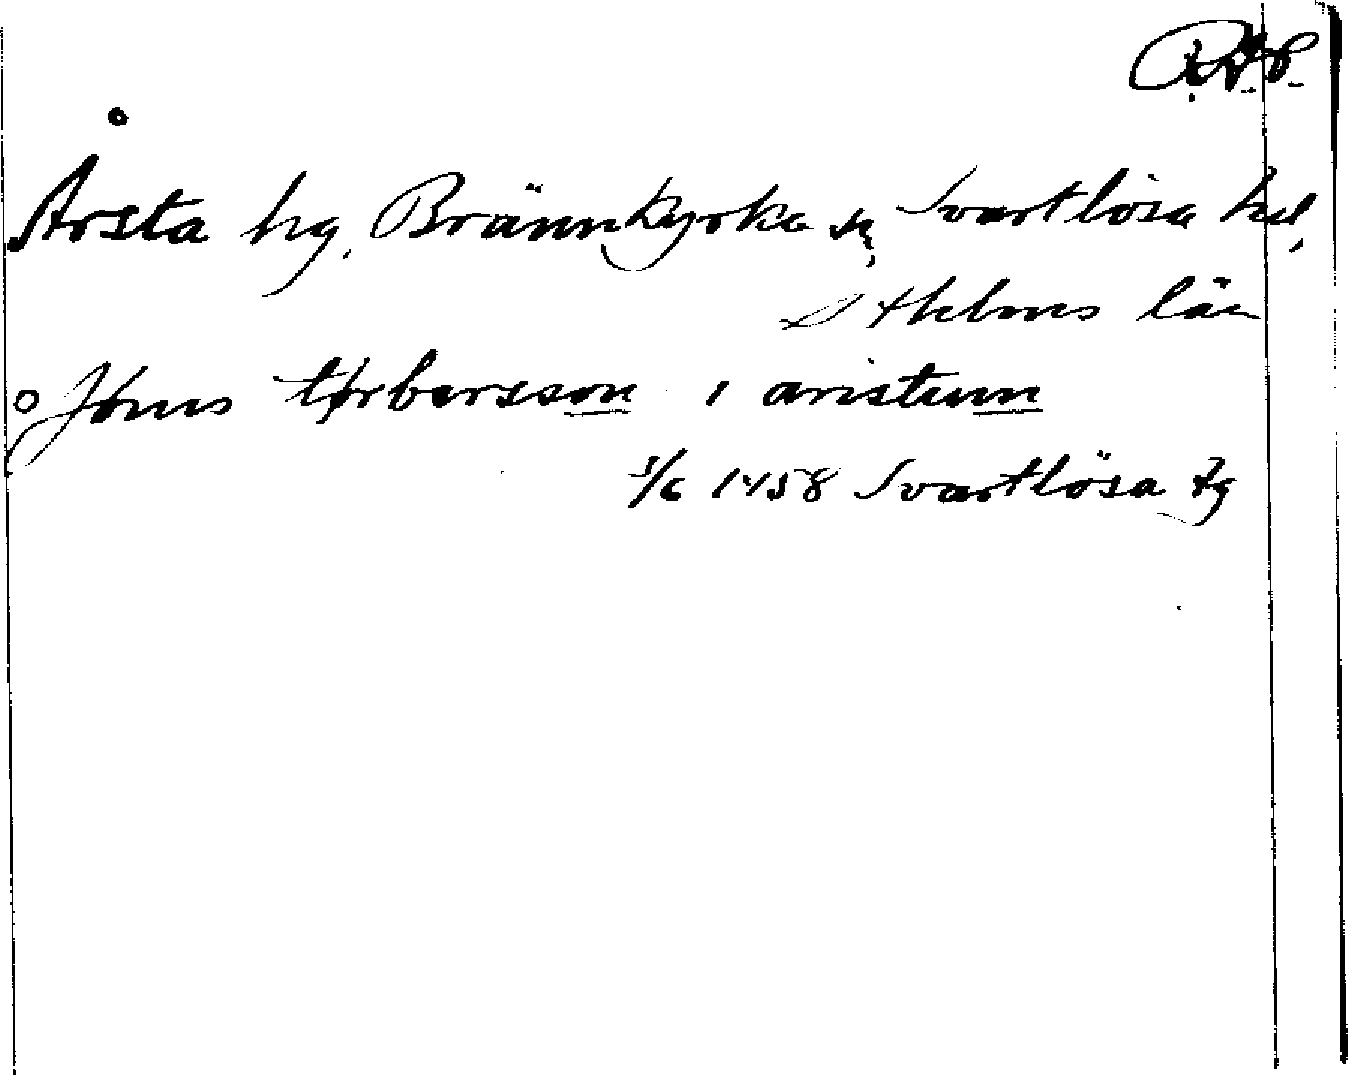 R.A.P.
Årsta hg, Brännkyrka sn, Svartlösa hd,
Sthlms län
Jönis tørbersson i aristum
1/6 1458 Svartlösa tg